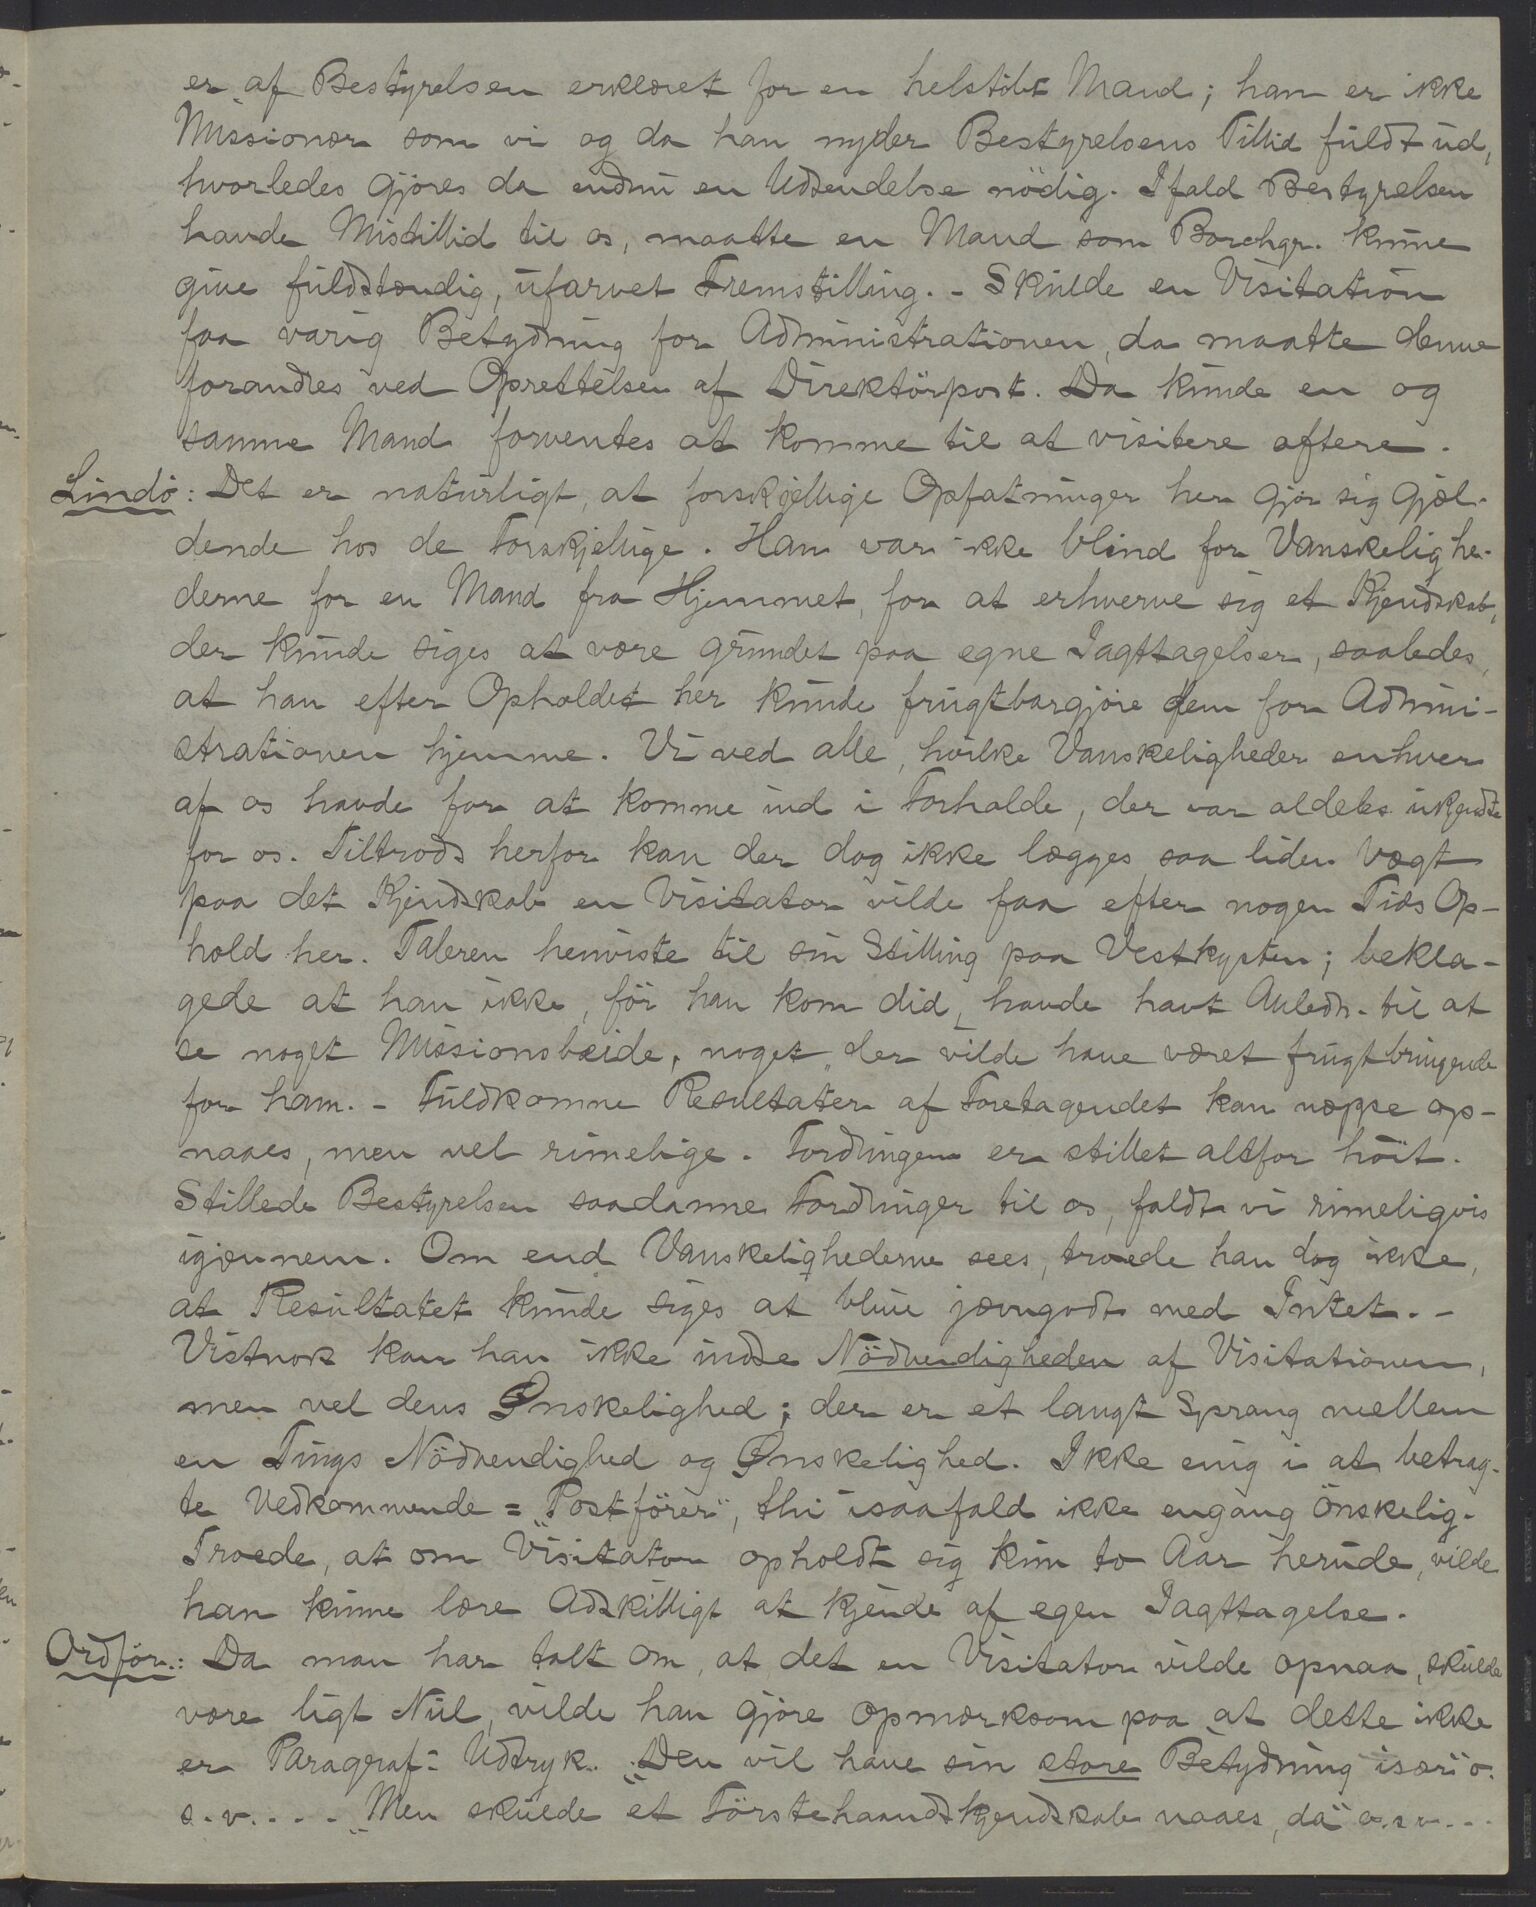 er af Bestyrelsen erklæret for en helstöbt Mand; han er ikke
Missionær som vi og da han nyder Bestyrelsens Tillid fuldt ud,
hvorledes gjöres da endnu en Udsendelse nödig. Ifald Bestyrelsen
havde Mistillid til os, maatte en Mand som Borchgr. kunne
give fuldstændig, ufarvet Fremstilling. - Skulde en Visitation
faa varig Betydning for Administrationen, da maatte denne
forandres ved Oprettelsen af Direktörpost. Da kunde en og
samme Mand forventes at komme til at visitere oftere.
Lindö: Det er naturligt at forskjellige Opfatninger her gjör sig gjæl-
dende hos de Forskjellige. Han var ikke blind for Vanskelighe-
derne for en Mand fra Hjemmet, for at erhverve sig et Kjendskab,
der kunde siges at være grundet paa egne Iagttagelser, saaledes,
at han efter Opholdet her kunde frugtbargjöre dem for Admini-
strationen hjemme. Vi ved alle, hvilke Vanskeligheder enhver
af os havde for at komme ind i Forholde, der var aldeles ukjendte
for os. Tiltrods herfor kan der dog ikke lægges saa liden Vægt
paa det Kjendskab en Visitator vilde faa efter nogen Tids Op-
hold her. Taleren henviste til sin Stilling paa Vestkysten; bekla-
gede at han ikke, för han kom did, havde havt Anledn. til at
se noget Missionsbeide, noget, der vilde have været frugtbringende
for ham. - Fuldkomne Resultater af Foretagendet kan neppe op-
naaes, men vel rimelige. Fordringen er stillet altfor höit.
Stillede Bestyrelsen saadanne Fordringer til os, faldt vi rimeligvis
igjennem. Om end Vanskelighederne sees, troede han dog ikke,
at Resultatet kunde siges at blive jævngodt med Intet. -
Vistnok kan han ikke indse Nödvendigheden af Visitationen,
men vel dens Ønskelighed; der er et langt Sprang mellem
en Tings Nödvendighed og Ønskelighed. Ikke enig i at betrag-
te Vedkommende = "Postförer", thi isaafald ikke engang önskelig.
Troede, at om Visitator opholdt sig kun to Aar herude, vilde
han kunne lære Adskilligt at kjende af egen Iagttagelse.
Ordför.: Da man har talt om, at det en Visitator vilde opnaa, skulde
være ligt Nul, vilde han gjöre opmærksom paa at dette ikke
er Paragraf-Udtryk. "Den vil have sin store Betydning især" o.
s.v.... "Men skulde et Förstehaandskjendskab naaes, da" o.s.v...